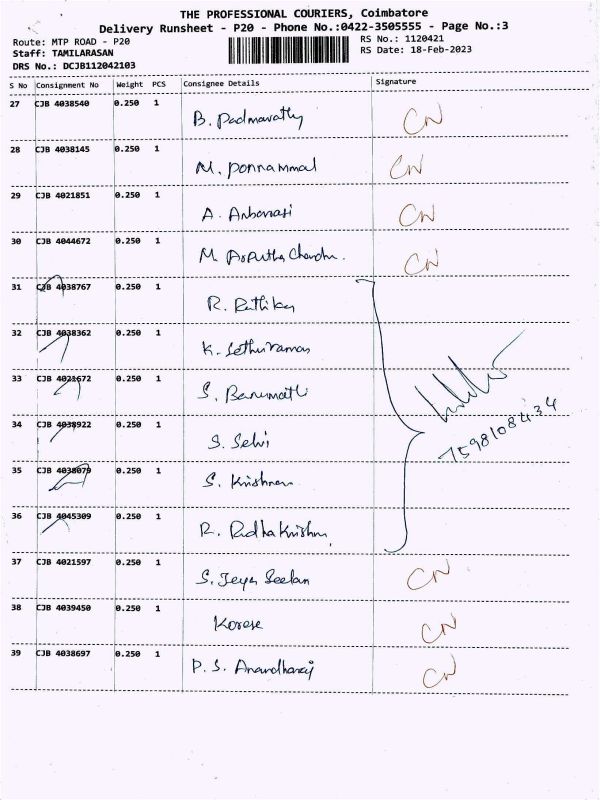 THE PROFESSIONAL COURIERS, Coimbatore
Delivery Runsheet - P20 - Phone No.:0422-3505555 - Page No.:3
Route: MTP ROAD - P20 RS No.: 1120421
Staff: TAMILARASAN RS Date: 18-Feb-2023
DRS No.: DCJB112042103
S No Consignment No Weight PCS Consignee Details Signature
27 CJB 4038540 0.250 1 B. Padmavathy CN
28 CJB 4038145 0.250 1 M. Ponnammal CN
29 CJB 4021851 0.250 1 A. Anbarasi CN
30 CJB 4044672 0.250 1 M. CN
31 CJB 4038767 0.250 1 R.
32 CJB 4038362 0.250 1 K. Sethuraman
33 CJB 4021672 0.250 1 S. Banumathi
34 CJB 4038922 0.250 1 S. Selvi
7598108434
35 CJB 4038079 0.250 1 S. Krishnan
36 CJB 4045309 0.250 1 R. Radhakrishnan
37 CJB 4021597 0.250 1 S. Jeya Seelan CN
38 CJB 4039450 0.250 1 Korese CN
39 CJB 4038697 0.250 1 P. S. Anandharaj CN